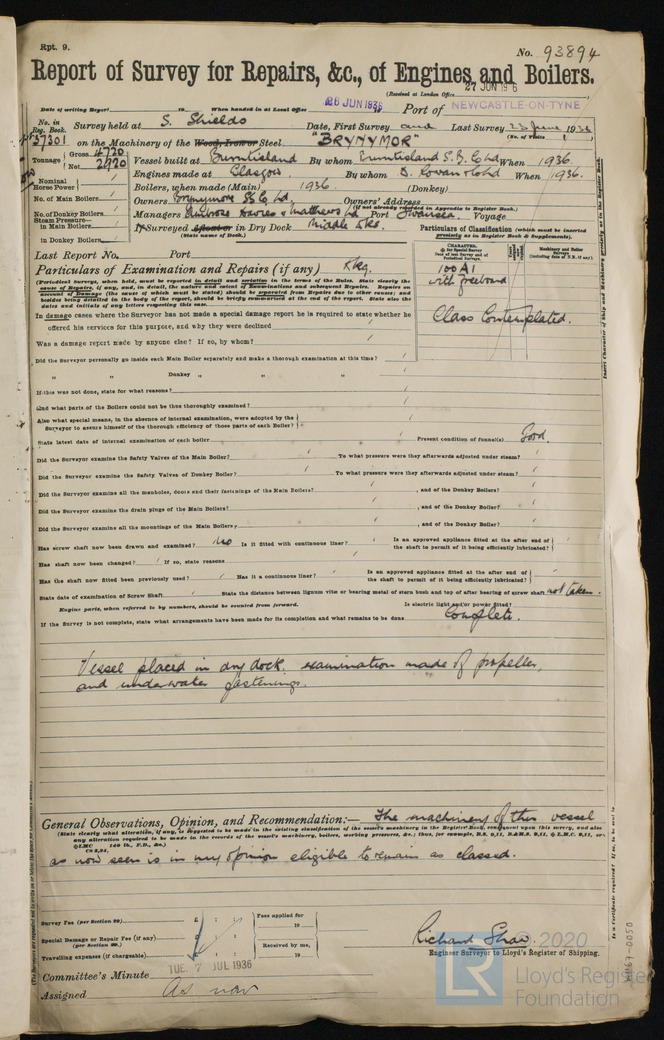 Rpt. 9.
No. 93894
Report of Survey for Repairs, &c., of Engines and Boilers.
(Received at London Office 27 JUN 19 6
Date of writing Report 19 When handed in at Local Office 26 JUN 1936 Port of NEWCASTLE-ON-TYNE
No. in Reg. Book. Survey held at S. Shields Date, First Survey and Last Survey 23 June 1936
(No. of Visits 1 )
37301 on the Machinery of the Wood, Iron or Steel "BRYNYMOR"
Tonnage Gross 4720 Net 2920
Vessel built at Burntisland By whom Burntisland S.B. Co Ltd When 1936
Engines made at Glasgow By whom D. Rowan & Co Ltd When 1936.
Nominal Horse Power
Boilers, when made (Main) 1936 (Donkey)
No. of Main Boilers
Owners Brynymor S.S. Co. Ltd. Owners' Address
(if not already recorded in Appendix to Register Book.)
No. of Donkey Boilers
Managers Ambrose Davies & Matthews Ld Port Swansea. Voyage
Steam Pressure in Main Boilers
in Donkey Boilers
If Surveyed Afloat or in Dry Dock Middle Dks.
(State name of Dock.)
Particulars of Classification (which must be inserted precisely as in Register Book & Supplements).
Last Report No. Port
Particulars of Examination and Repairs (if any) Dkg.
100A1
with freeboard
Class Contemplated.
(Periodical Surveys, when held, must be reported in detail and seriatim in the terms of the Rules. State clearly the
cause of Repairs, if any, and, in detail, the nature and extent of Examinations and subsequent Repairs. Repairs on
account of Damage (the cause of which must be stated) should be separated from Repairs due to other causes; and
besides being detailed in the body of the report, should be briefly summarised at the end of the report. State also the
dates and initials of any letters respecting this case.)
In damage cases where the Surveyor has not made a special damage report he is required to state whether he
offered his services for this purpose, and why they were declined
Was a damage report made by anyone else? If so, by whom?
Did the Surveyor personally go inside each Main Boiler separately and make a thorough examination at this time?
„ „ Donkey „ „ „
If this was not done, state for what reasons?
And what parts of the Boilers could not be thus thoroughly examined?
Also what special means, in the absence of internal examination, were adopted by the
Surveyor to assure himself of the thorough efficiency of those parts of each Boiler?
State latest date of internal examination of each boiler Present condition of funnel(s) Good.
Did the Surveyor examine the Safety Valves of the Main Boiler? To what pressure were they afterwards adjusted under steam?
Did the Surveyor examine the Safety Valves of Donkey Boiler? To what pressure were they afterwards adjusted under steam?
Did the Surveyor examine all the manholes, doors and their fastenings of the Main Boilers? , and of the Donkey Boilers?
Did the Surveyor examine the drain plugs of the Main Boilers? , and of the Donkey Boiler?
Did the Surveyor examine all the mountings of the Main Boilers? , and of the Donkey Boiler?
Has screw shaft now been drawn and examined? No Is it fitted with continuous liner? Is an approved appliance fitted at the after end of the shaft to permit of it being efficiently lubricated?
Has shaft now been changed? If so, state reasons
Has the shaft now fitted been previously used? Has it a continuous liner? Is an approved appliance fitted at the after end of the shaft to permit of it being efficiently lubricated?
State date of examination of Screw Shaft State the distance between lignum vitæ or bearing metal of stern bush and top of after bearing of screw shaft not taken.
Engine parts, when referred to by numbers, should be counted from forward. Is electric light and/or power fitted?
If the Survey is not complete, state what arrangements have been made for its completion and what remains to be done Complete.
Vessel placed in dry dock. examination made of propeller,
and underwater fastenings.
General Observations, Opinion, and Recommendation:— The machinery of this vessel
(State clearly what alteration, if any, is suggested to be made in the existing classification of the vessel's machinery in the Register Book, consequent upon this survey, and also
as now seen is in my opinion eligible to remain as classed.
Survey Fee (per Section 29) £ : : Fees applied for
Special Damage or Repair Fee (if any) (per Section 29.) £ : : 19
Travelling expenses (if chargeable) £ : : Received by me, 19
Richard Shaw.
Engineer Surveyor to Lloyd's Register of Shipping.
Committee's Minute TUE. 7 JUL 1936
Assigned As now
© 2020
LR Lloyd's Register
Foundation